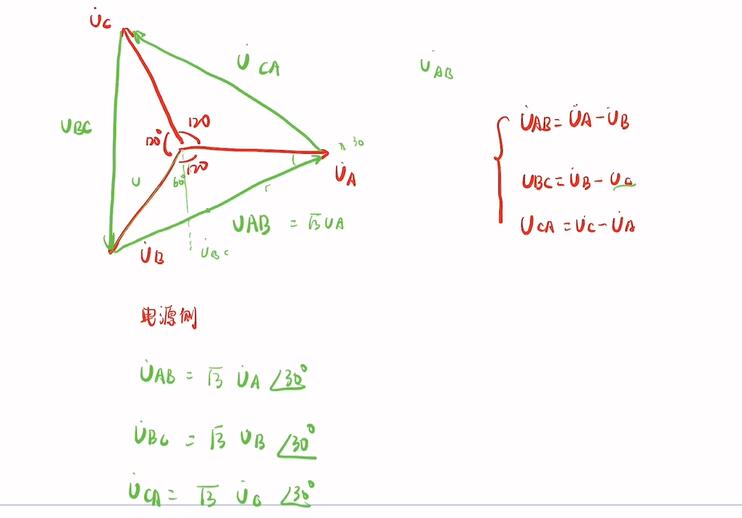 U̇C
U̇CA
U̇AB
UBC
120
120°
120
60°
U
30
U̇A
r
UAB = √3 UA
U̇B
U̇BC
U̇AB = U̇A - U̇B
UBC = U̇B - UC
UCA = U̇C - U̇A
电源侧
U̇AB = √3 U̇A ∠30°
U̇BC = √3 UB ∠30°
U̇CA = √3 U̇C ∠30°